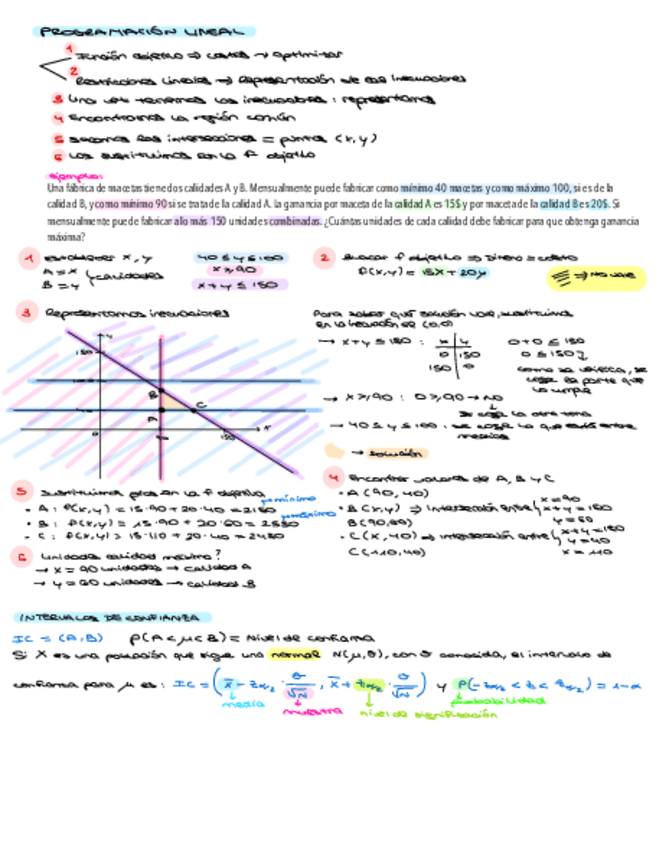 PROGRAMACIÓN LINEAL
1 Función objetivo => costes -> optimizar
2 Restricciones lineales => Representación de las inecuaciones
3 Una vez tenemos las inecuaciones: representamos
4 Encontramos la región común
5 sacamos las intersecciones = puntos (x,y)
6 Los sustituimos en la F objetivo
ejemplo:
Una fábrica de macetas tiene dos calidades A y B. Mensualmente puede fabricar como mínimo 40 macetas y como máximo 100, si es de la
calidad B, y como mínimo 90 si se trata de la calidad A. la ganancia por maceta de la calidad A es 15$ y por maceta de la calidad B es 20$. Si
mensualmente puede fabricar a lo más 150 unidades combinadas. ¿Cuántas unidades de cada calidad debe fabricar para que obtenga ganancia
máxima?
1 establecer x, y
A = x
B = y
} calidades
40 ≤ y ≤ 100
x ≥ 90
x + y ≤ 150
2 Buscar f objetivo => Dinero = costo
f(x,y) = 15x + 20y
=> No vale
3 Representamos inecuaciones
y
150
B
A
C
0
90
150
x
Para saber qué solución vale, sustituimos
en la inecuación el (0,0)
-> x+y ≤ 150 :
x y
0 150
150 0
0+0 ≤ 150
0 ≤ 150
como se verifica, se
coge la parte que
lo cumple
-> x ≥ 90 : 0 ≥ 90 -> NO
Se coge la otra zona
-> 40 ≤ y ≤ 100 : se coge lo que está entre
medias
-> solución
4 Encontrar valores de A, B y C
• A (90, 40)
• B (x,y) => Intersección entre { x = 90
x+y = 150
B (90,60)
y = 60
• C (x, 40) => intersección entre { x+y = 150
y = 40
C (110, 40)
x = 110
5 Sustituimos ptos en la f objetivo
• A : f(x,y) = 15·90 + 20·40 = 2150 mínimo
• B : f(x,y) = 15·90 + 20·60 = 2550 máximo
• C : f(x,y) = 15·110 + 20·40 = 2450
6 Unidades calidad máximo?
-> x = 90 unidades -> calidad A
-> y = 60 unidades -> calidad B
INTERVALOS DE CONFIANZA
IC = (A,B) P(A < μ < B) = Nivel de confianza
Si X es una población que sigue una normal N(μ,σ), con σ conocida, el intervalo de
confianza para μ es: IC = (x̄ - zα/2 · σ/√N , x̄ + zα/2 · σ/√N) y P(-zα/2 < z < zα/2) = 1-α
media
muestra
nivel de significación
probabilidad